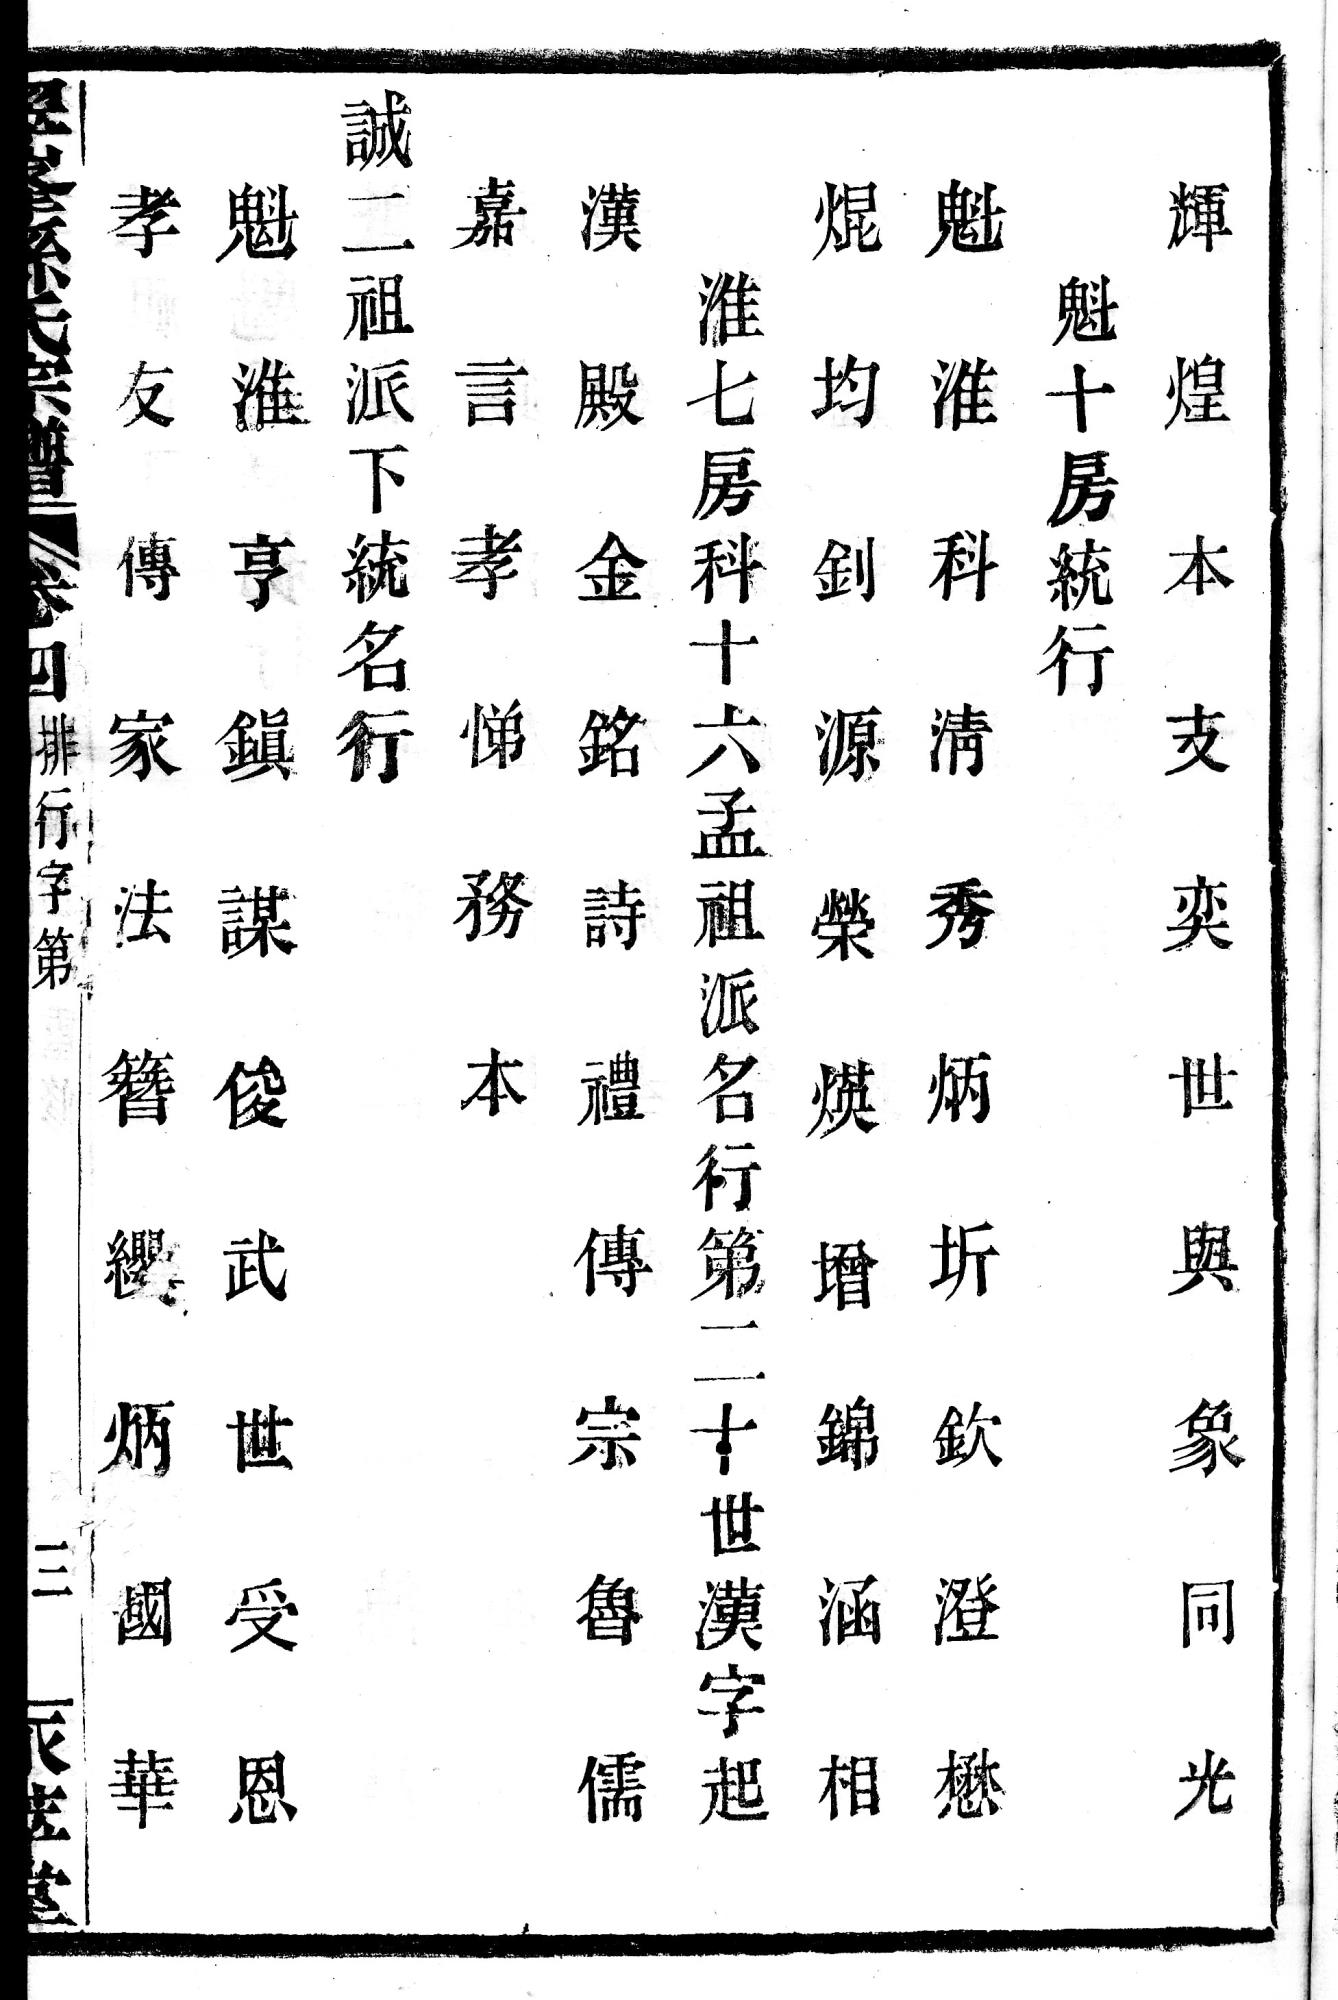 輝煌本支奕世與象同光
魁十房統行
魁淮科清秀炳圻欽澄懋
焜均釗源榮煐增錦涵相
淮七房科十六孟祖派名行第二十世漢字起
漢殿金銘詩禮傳宗魯儒
嘉言孝悌務本
誠二祖派下統名行
魁淮亨鎭謀俊武世受恩
孝友傳家法簪纓炳國華
孫氏宗譜 卷四 排行字第 三 堂